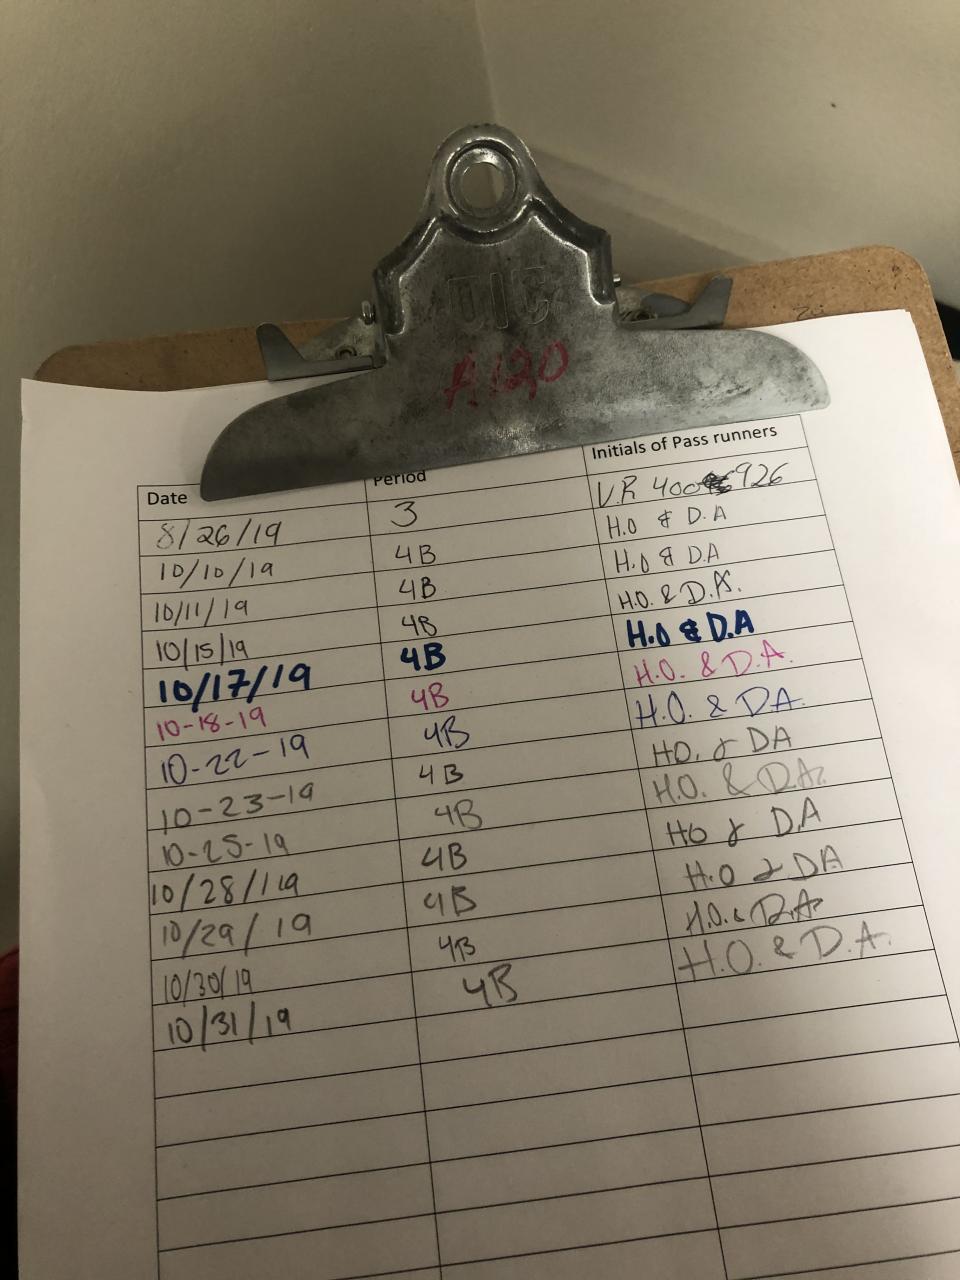 UIC
A120
Date Period Initials of Pass runners
8/26/19 3 V.R 400 926
10/10/19 4B H.O & D.A
10/11/19 4B H.O & D.A
10/15/19 4B H.O. & D.A.
10/17/19 4B H.O & D.A
10-18-19 4B H.O. & D.A.
10-22-19 4B H.O. & DA.
10-23-19 4B HO. & DA
10-25-19 4B H.O. & D.A.
10/28/119 4B HO & D.A
10/29/19 4B H.O & DA
10/30/19 4B H.O. & D.A.
10/31/19 4B H.O. & D.A.